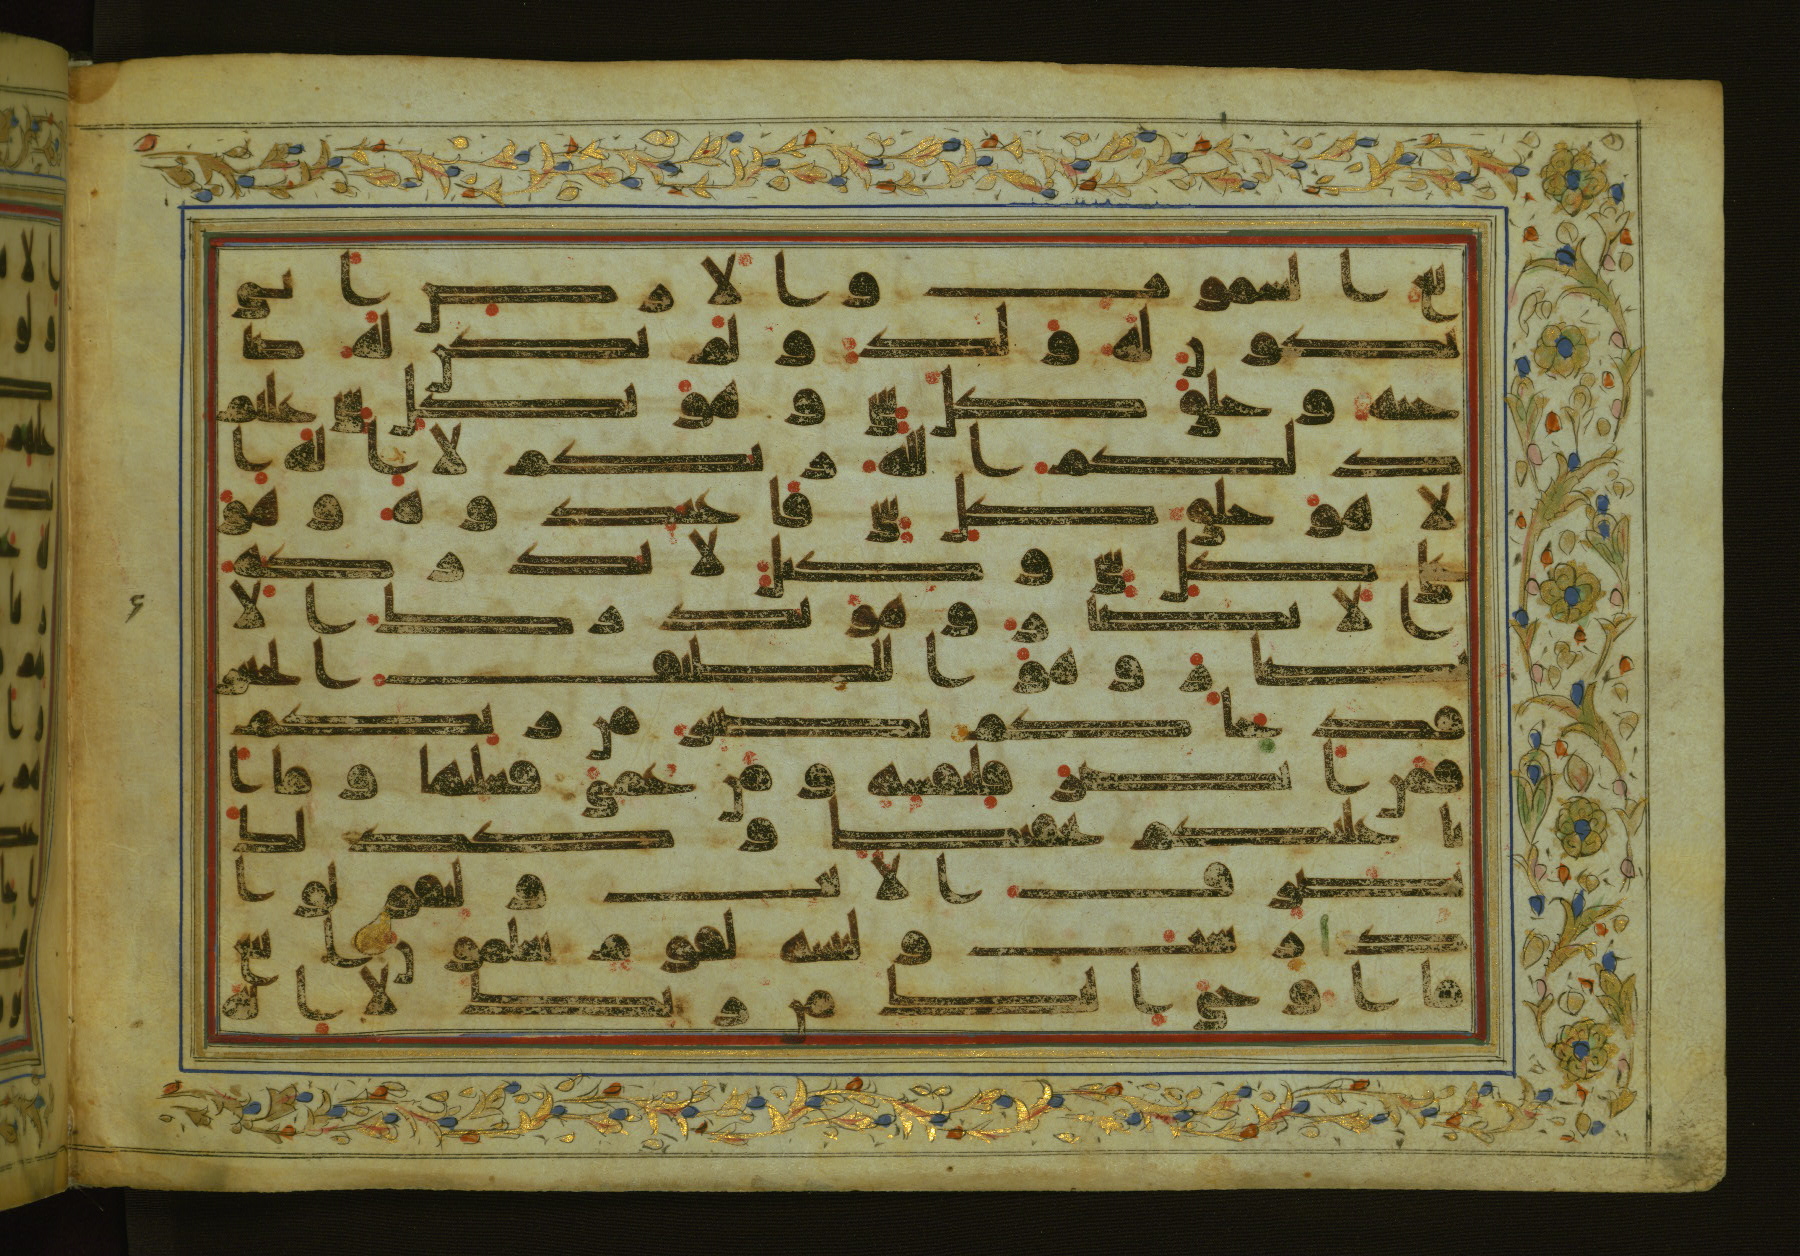 يع السموت والارض انى
يكون له ولد ولم تكن له صا
حبه وخلق كل شي وهو بكل شي عليم
ذلكم الله ربكم لا اله ا
لا هو خلق كل شي فاعبدوه وهو
على كل شي وكيل لا تدركه
الابصر وهو يدرك الا
بصر وهو اللطيف الخبير
قد جاكم بصير من ربكم
فمن ابصر فلنفسه ومن عمي فعليها وما ا
نا عليكم بحفيظ وكذلك
نصرف الايت وليقولوا
درست ولنبينه لقوم يعلمون اتبع
ما اوحي اليك من ربك لا اله